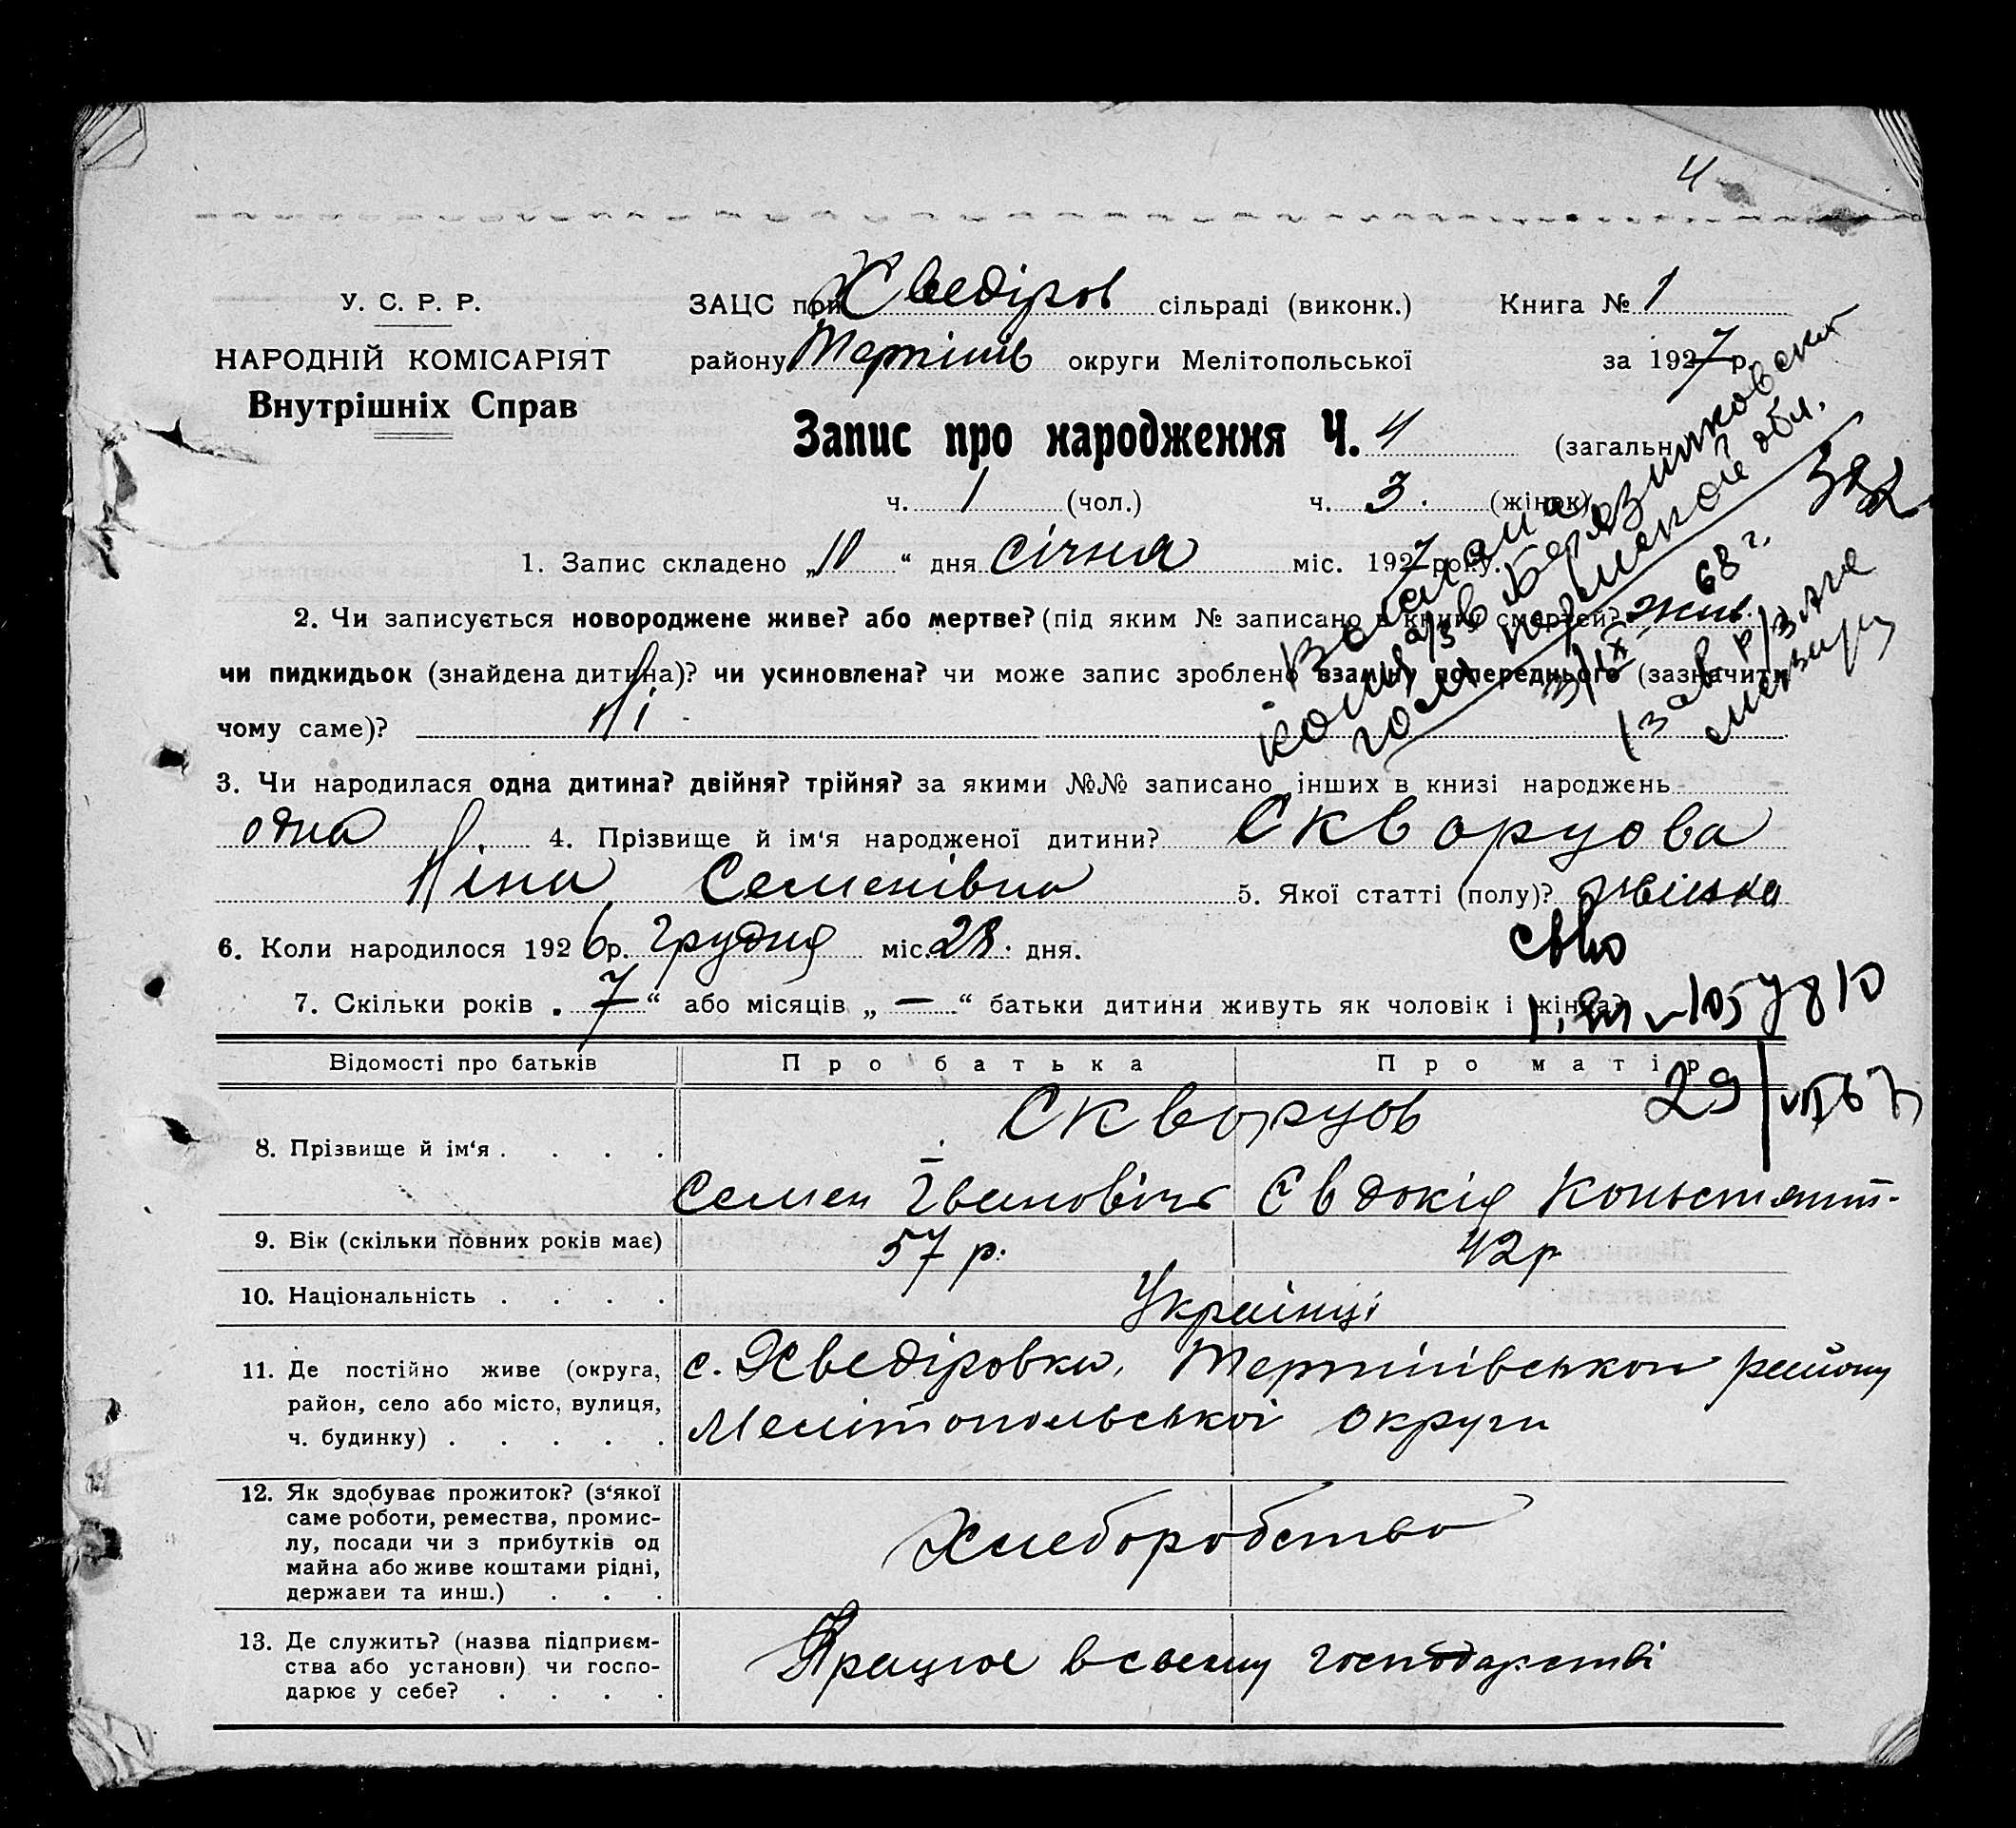 4
У. С. Р. Р.
НАРОДНІЙ КОМІСАРІЯТ
Внутрішніх Справ
ЗАЦС при Хведіров сільраді (виконк.) Книга № 1
району Терпінів округи Мелітопольської за 1927 р.
Запис про народження Ч. 4 (загальн
ч. 1 (чол.) ч. 3. (жінок)
1. Запис складено „10“ дня січня міс. 1927 року.
2. Чи записується новороджене живе? або мертве? (під яким № записано в книгу смертей? жив.
чи пидкидьок (знайдена дитина)? чи усиновлена? чи може запис зроблено взаміну попереднього (зазначити
чому саме)? Ні
3. Чи народилася одна дитина? двійня? трійня? за якими №№ записано інших в книзі народжень
одна 4. Прізвище й ім‘я народженої дитини? Скворцова
Ніна Семенівна 5. Якої статті (полу)? жінька
6. Коли народилося 1926 р. грудня міс. 28. дня.
7. Скільки років „7“ або місяців „—“ батьки дитини живуть як чоловік і жінка?
выслана
копия а/з в Березниковский
гор Пермской обл.
382
3/IX-68 г.
св-во
105780
29/VIII 67
Відомості про батьків Про батька Про матір
8. Прізвище й ім‘я . . . . Скворцов
Семен Івановічь Євдокія Коньстянт-
9. Вік (скільки повних років має) 57 р. 42 р
10. Національність . . . . Українці
11. Де постійно живе (округа, с. Хведіровка, Терпінівськой району
район, село або місто, вулиця, Мелітопольської округи
ч. будинку) . . . . .
12. Як здобуває прожиток? (з‘якої
саме роботи, ремества, промис-
лу, посади чи з прибутків од Хлеборобство
майна або живе коштами рідні,
держави та инш.) . . .
13. Де служить? (назва підприєм- Працює в своему господарстві
ства або установи) чи госпо-
дарює у себе? . . . .